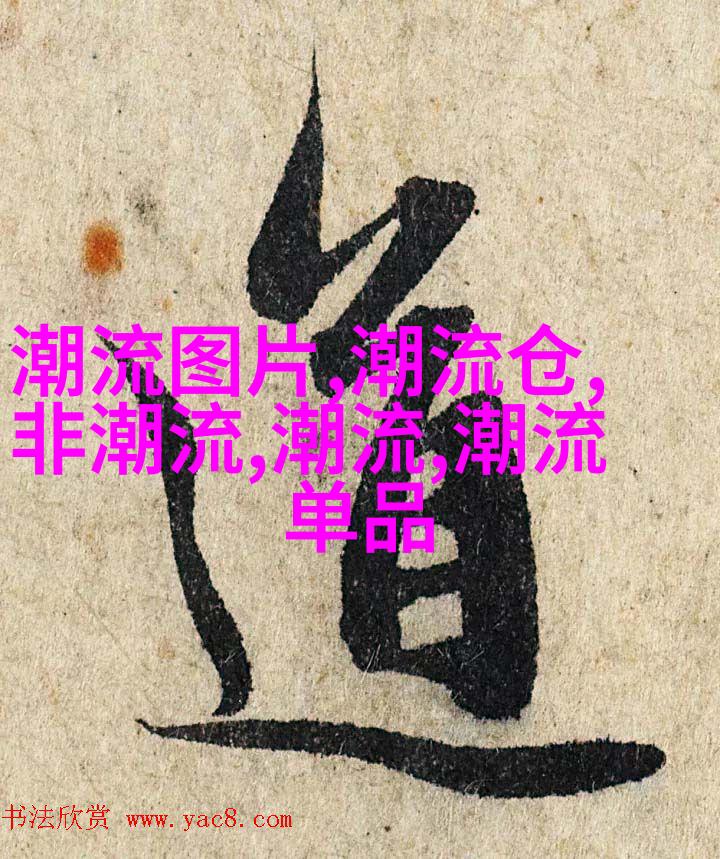 道
潮流图片,潮流仓,
非潮流,潮流,潮流
单品
书法欣赏 www.yac8.com